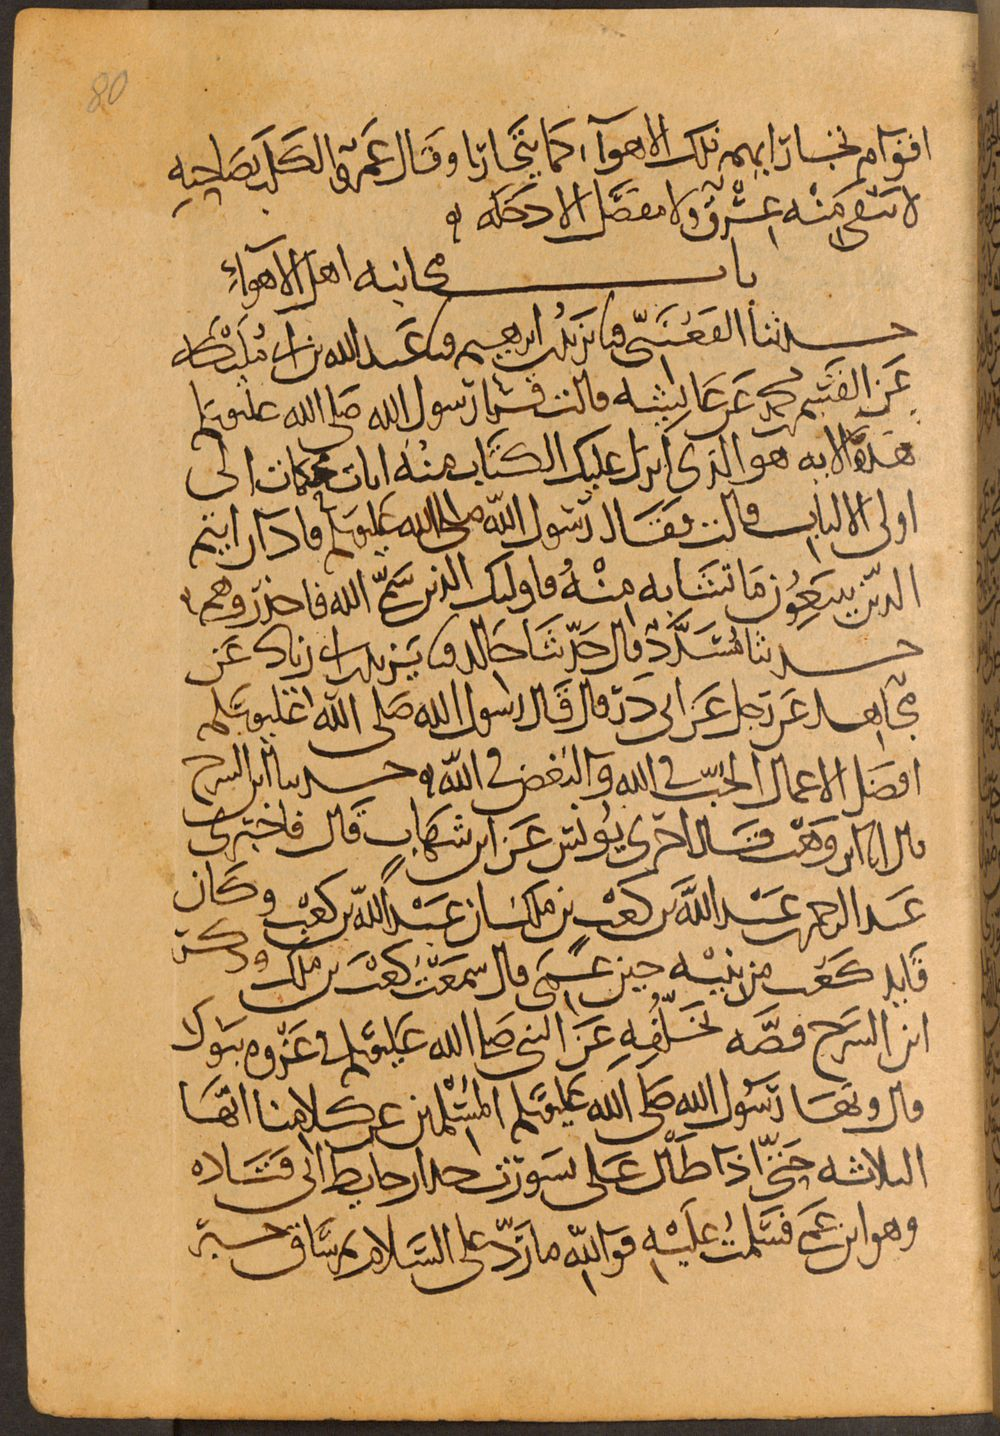 80
اقوام تجارا بهم تلك الاهوآء كما يتجارا وقال عمرو الكلب بصاحبه
لا تبقى منه عرق ولا مفصل الا دخله
باب مجانبه اهل الاهوآء
حدثنا القعنبي نا يزيد بن ابرهيم نا عبد الله بن ابي مليكة
عن القسم بن محمد عن عايشه قالت قرا رسول الله صلى الله عليه وسلم
هذه الايه هو الذي انزل عليك الكتاب منه ايات محكمات الى
اولى الالباب قالت فقال رسول الله صلى الله عليه وسلم فاذا رايتم
الذين يتبعون ما تشابه منه فاوليك الذين سمى الله فاحذروهم
حدثنا مسدد قال حدثنا خالد نا يزيد بن ابي زياد عن
مجاهد عن رجل عن ابي ذر قال قال رسول الله صلى الله عليه وسلم
افضل الاعمال الحب في الله والبغض في الله حدثنا ابن السرح
قال انا ابن وهب قال اخبرني يونس عن ابن شهاب قال فاخبرني
عبد الرحمن بن عبد الله بن كعب بن ملك ان عبد الله بن كعب وكان
قايد كعب من بنيه حين عمى قال سمعت كعب بن ملك وذكر
ابن السرح قصه تخلفه عن النبي صلى الله عليه وسلم في غزوه تبوك
قال ونها رسول الله صلى الله عليه وسلم المسلمين عن كلامنا ايها
الثلاثه حتى اذا طال على تسورت جدار حايط ابي قتاده
وهو ابن عمى فسلمت عليه فوالله ما رد على السلام ثم ساق خبر